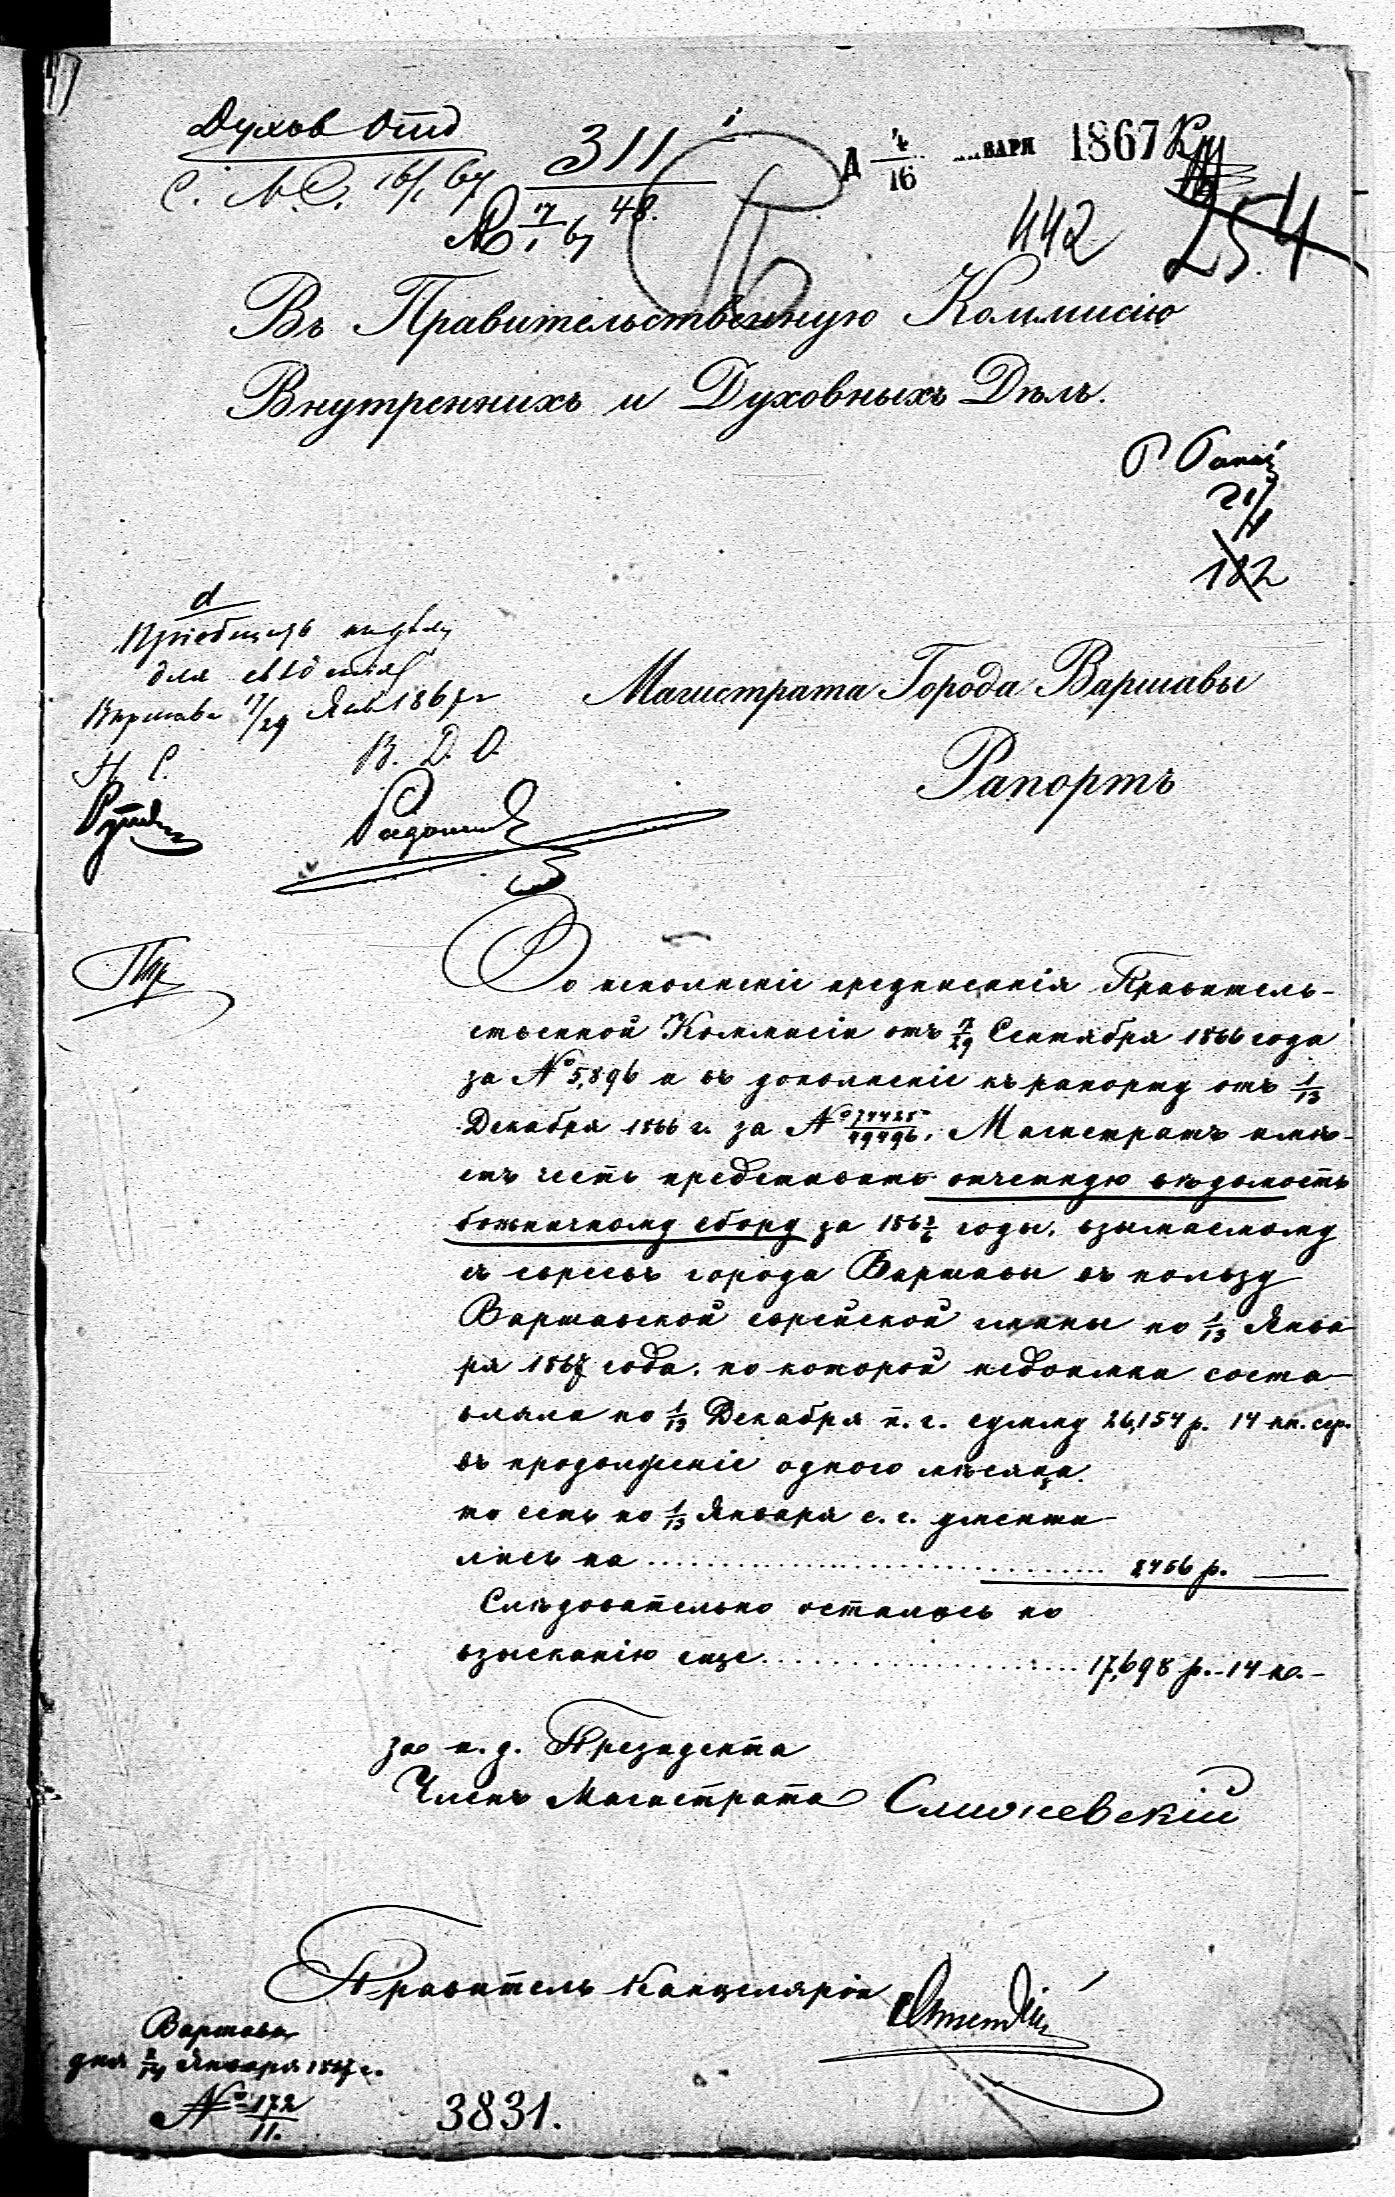 Духов Отд
311
Д 4/16 января 1867
16/1 67
17/1 67 48.
442
254
Въ Правительственную Коммисію
Внутреннихъ и Духовныхъ Дѣлъ.
21/11
182
Пріобщить къ дѣлу
для свѣдѣнія
Варшава 17/29 Янв 1867 г
В. Д. О.
Магистрата Города Варшавы
Рапортъ
Во исполненіе предписанія Правитель-
ственной Коммисіи отъ 17/29 Сентября 1866 года
за № 5,896 и въ дополненіе къ рапорту отъ 1/13
Декабря 1866 г. за № 74425/49496, Магистратъ имѣ-
етъ честь представить отчетную вѣдомость
божничному сбору за 186 5/6 годы, взымаемому
съ евреевъ города Варшавы въ пользу
Варшавской еврейской гмины по 1/13 Янва
ря 1867 года, по которой недоимка соста-
вляла по 1/13 Декабря п. г. сумму 26,154 р. 14 кп. сер.
въ продолженіе одного мѣсяца
то есть по 1/13 Января с. г. уменши-
лась на 8456 р.
Слѣдовательно осталось ко
взысканію еще 17,698 р. 14 к.
за и. д. Президента
Членъ Магистрата
Правитель Канцеляріи
Варшава
дня 2/14 Января 1867 г.
№ 172/11.
3831.